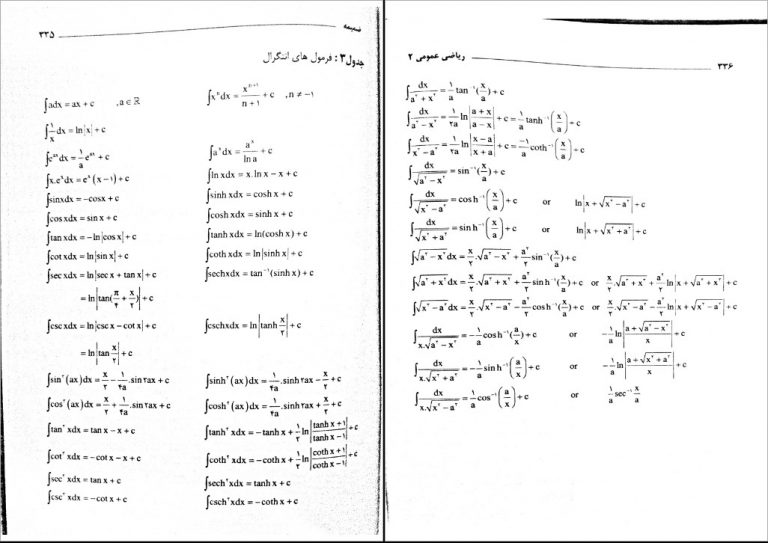 ضمیمه
۳۳۵
جدول۳ : فرمول های انتگرال
∫adx = ax + c , a ∈ ℝ
∫xⁿdx = xⁿ⁺¹/(n + ۱) + c , n ≠ −۱
∫(۱/x)dx = ln|x| + c
∫eᵃˣdx = (۱/a)eᵃˣ + c
∫aˣdx = aˣ/ln a + c
∫x.eˣdx = eˣ(x − ۱) + c
∫ln xdx = x.ln x − x + c
∫sinxdx = −cosx + c
∫sinh xdx = cosh x + c
∫cos xdx = sin x + c
∫cosh xdx = sinh x + c
∫tan xdx = −ln|cos x| + c
∫tanh xdx = ln(cosh x) + c
∫cot xdx = ln|sin x| + c
∫coth xdx = ln|sinh x| + c
∫sec xdx = ln|sec x + tan x| + c
∫sechxdx = tan⁻¹(sinh x) + c
= ln|tan(π/۴ + x/۲)| + c
∫csc xdx = ln|csc x − cot x| + c
∫cschxdx = ln|tanh x/۲| + c
= ln|tan x/۲| + c
∫sin²(ax)dx = x/۲ − (۱/۴a).sin۲ax + c
∫sinh²(ax)dx = (۱/۴a).sinh۲ax − x/۲ + c
∫cos²(ax)dx = x/۲ + (۱/۴a).sin۲ax + c
∫cosh²(ax)dx = (۱/۴a).sinh۲ax + x/۲ + c
∫tan² xdx = tan x − x + c
∫tanh² xdx = −tanh x + (۱/۲)ln|(tanh x + ۱)/(tanh x − ۱)| + c
∫cot² xdx = −cot x − x + c
∫coth² xdx = −coth x + (۱/۲)ln|(coth x + ۱)/(coth x − ۱)| + c
∫sec² xdx = tan x + c
∫sech² xdx = tanh x + c
∫csc² xdx = −cot x + c
∫csch² xdx = −coth x + c
ریاضی عمومی ۲
۳۳۶
∫dx/(a² + x²) = (۱/a)tan⁻¹(x/a) + c
∫dx/(a² − x²) = (۱/۲a)ln|(a + x)/(a − x)| + c = (۱/a)tanh⁻¹(x/a) + c
∫dx/(x² − a²) = (۱/۲a)ln|(x − a)/(x + a)| + c = −(۱/a)coth⁻¹(x/a) + c
∫dx/√(a² − x²) = sin⁻¹(x/a) + c
∫dx/√(x² − a²) = cosh⁻¹(x/a) + c or ln|x + √(x² − a²)| + c
∫dx/√(x² + a²) = sinh⁻¹(x/a) + c or ln|x + √(x² + a²)| + c
∫√(a² − x²)dx = (x/۲).√(a² − x²) + (a²/۲)sin⁻¹(x/a) + c
∫√(a² + x²)dx = (x/۲).√(a² + x²) + (a²/۲)sinh⁻¹(x/a) + c or (x/۲).√(a² + x²) + (a²/۲)ln|x + √(a² + x²)| + c
∫√(x² − a²)dx = (x/۲).√(x² − a²) − (a²/۲)cosh⁻¹(x/a) + c or (x/۲).√(x² − a²) − (a²/۲)ln|x + √(x² − a²)| + c
∫dx/(x.√(a² − x²)) = −(۱/a)cosh⁻¹(a/x) + c or −(۱/a)ln|(a + √(a² − x²))/x| + c
∫dx/(x.√(x² + a²)) = −(۱/a)sinh⁻¹(a/x) + c or −(۱/a)ln|(a + √(x² + a²))/x| + c
∫dx/(x.√(x² − a²)) = (۱/a)cos⁻¹(a/x) + c or (۱/a)sec⁻¹ x/a